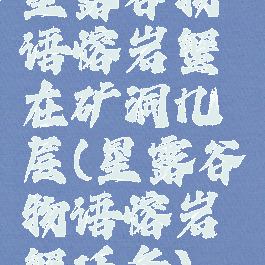 星露谷物
语熔岩蟹
在矿洞几
层(星露谷
物语熔岩